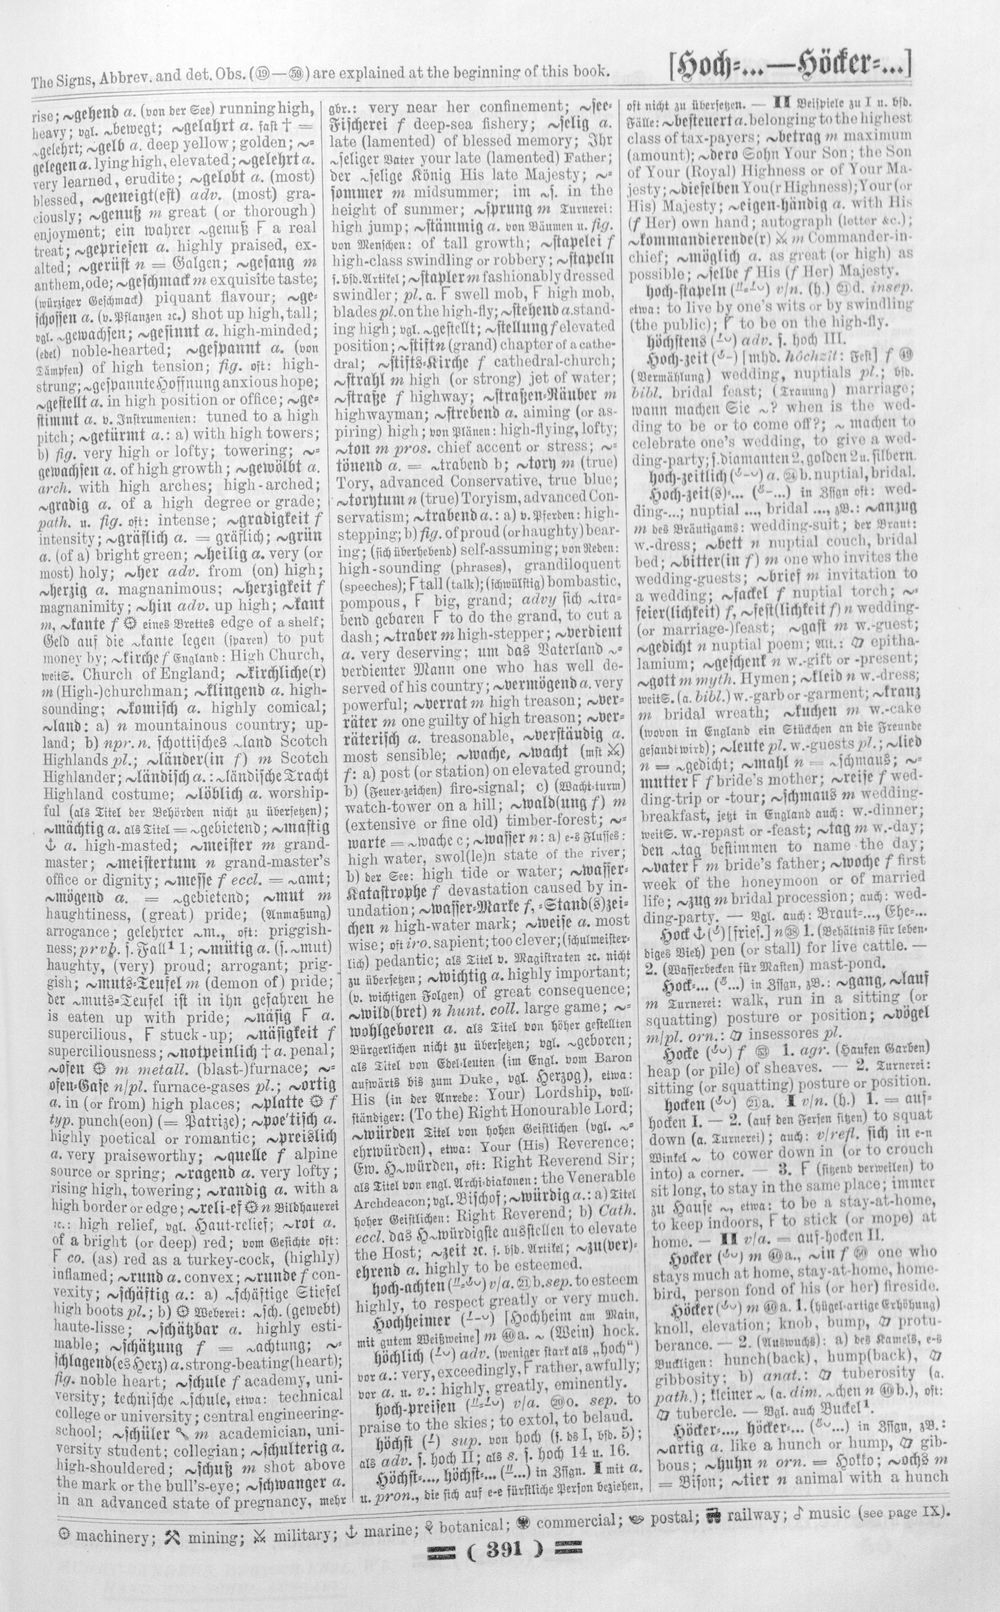 The Signs, Abbrev. and det. Obs. (⑲—㊾) are explained at the beginning of this book.
[Hoch=...—Höcker=...]
rise; ~gehend a. (von der See) running high,
heavy; vgl. ~bewegt; ~gelahrt a. fast † =
~gelehrt; ~gelb a. deep yellow; golden; ~=
gelegen a. lying high, elevated; ~gelehrt a.
very learned, erudite; ~gelobt a. (most)
blessed, ~geneigt(est) adv. (most) gra-
ciously; ~genuß m great (or thorough)
enjoyment; ein wahrer ~genuß F a real
treat; ~gepriesen a. highly praised, ex-
alted; ~gerüst n = Galgen; ~gesang m
anthem, ode; ~geschmack m exquisite taste;
(würziger Geschmack) piquant flavour; ~ge=
schossen a. (v. Pflanzen ꝛc.) shot up high, tall;
vgl. ~gewachsen; ~gesinnt a. high-minded;
(edel) noble-hearted; ~gespannt a. (von
Dämpfen) of high tension; fig. oft: high-
strung; ~gespannte Hoffnung anxious hope;
~gestellt a. in high position or office; ~ge=
stimmt a. v. Instrumenten: tuned to a high
pitch; ~getürmt a.: a) with high towers;
b) fig. very high or lofty; towering; ~=
gewachsen a. of high growth; ~gewölbt a.
arch. with high arches; high-arched;
~gradig a. of a high degree or grade;
path. u. fig. oft: intense; ~gradigkeit f
intensity; ~gräflich a. = gräflich; ~grün
a. (of a) bright green; ~heilig a. very (or
most) holy; ~her adv. from (on) high;
~herzig a. magnanimous; ~herzigkeit f
magnanimity; ~hin adv. up high; ~kant
m, ~kante f ⚙ eines Brettes edge of a shelf;
Geld auf die ~kante legen (sparen) to put
money by; ~kirche f England: High Church,
weitS. Church of England; ~kirchliche(r)
m (High-)churchman; ~klingend a. high-
sounding; ~komisch a. highly comical;
~land: a) n mountainous country; up-
land; b) npr. n. schottisches ~land Scotch
Highlands pl.; ~länder(in f) m Scotch
Highlander; ~ländisch a.: ~ländische Tracht
Highland costume; ~löblich a. worship-
ful (als Titel der Behörden nicht zu übersetzen);
~mächtig a. als Titel = ~gebietend; ~mastig
⚓ a. high-masted; ~meister m grand-
master; ~meistertum n grand-master's
office or dignity; ~messe f eccl. = ~amt;
~mögend a. = ~gebietend; ~mut m
haughtiness, (great) pride; (Anmaßung)
arrogance; gelehrter ~m., oft: priggish-
ness; prvb. s. Fall¹ 1; ~mütig a. (s. ~mut)
haughty, (very) proud; arrogant; prig-
gish; ~muts=Teufel m (demon of) pride;
der ~muts=Teufel ist in ihn gefahren he
is eaten up with pride; ~näsig F a.
supercilious, F stuck-up; ~näsigkeit f
superciliousness; ~notpeinlich † a. penal;
~ofen ⚙ m metall. (blast-)furnace; ~=
ofen=Gase n/pl. furnace-gases pl.; ~ortig
a. in (or from) high places; ~platte ⚙ f
typ. punch(eon) (= Patrize); ~poe'tisch a.
highly poetical or romantic; ~preislich
a. very praiseworthy; ~quelle f alpine
source or spring; ~ragend a. very lofty;
rising high, towering; ~randig a. with a
high border or edge; ~reli-ef ⚙ n Bildhauerei
ꝛc.: high relief, vgl. Haut-relief; ~rot a.
of a bright (or deep) red; vom Gesichte oft:
F co. (as) red as a turkey-cock, (highly)
inflamed; ~rund a. convex; ~runde f con-
vexity; ~schäftig a.: a) ~schäftige Stiefel
high boots pl.; b) ⚙ Weberei: ~sch. (gewebt)
haute-lisse; ~schätzbar a. highly esti-
mable; ~schätzung f = ~achtung; ~=
schlagend(es Herz) a. strong-beating(heart);
fig. noble heart; ~schule f academy, uni-
versity; technische ~schule, etwa: technical
college or university; central engineering-
school; ~schüler m academician, uni-
versity student; collegian; ~schulterig a.
high-shouldered; ~schuß m shot above
the mark or the bull's-eye; ~schwanger a.
in an advanced state of pregnancy, mehr
gbr.: very near her confinement; ~see=
Fischerei f deep-sea fishery; ~selig a.
late (lamented) of blessed memory; Ihr
~seliger Vater your late (lamented) Father;
der ~selige König His late Majesty; ~=
sommer m midsummer; im ~s. in the
height of summer; ~sprung m Turnerei:
high jump; ~stämmig a. von Bäumen u. fig.
von Menschen: of tall growth; ~stapelei f
high-class swindling or robbery; ~stapeln
s. bsd. Artikel; ~stapler m fashionably dressed
swindler; pl. a. F swell mob, F high mob,
blades pl. on the high-fly; ~stehend a. stand-
ing high; vgl. ~gestellt; ~stellung f elevated
position; ~stift n (grand) chapter of a cathe-
dral; ~stifts=Kirche f cathedral-church;
~strahl m high (or strong) jet of water;
~straße f highway; ~straßen=Räuber m
highwayman; ~strebend a. aiming (or as-
piring) high; von Plänen: high-flying, lofty;
~ton m pros. chief accent or stress; ~=
tönend a. = ~trabend b; ~tory m (true)
Tory, advanced Conservative, true blue;
~torytum n (true) Toryism, advanced Con-
servatism; ~trabend a.: a) v. Pferden: high-
stepping; b) fig. of proud (or haughty) bear-
ing; (sich überhebend) self-assuming; von Reden:
high-sounding (phrases), grandiloquent
(speeches); F tall (talk); (schwülstig) bombastic,
pompous, F big, grand; advy sich ~tra=
bend gebaren F to do the grand, to cut a
dash; ~traber m high-stepper; ~verdient
a. very deserving; um das Vaterland ~=
verdienter Mann one who has well de-
served of his country; ~vermögend a. very
powerful; ~verrat m high treason; ~ver=
räter m one guilty of high treason; ~ver=
räterisch a. treasonable, ~verständig a.
most sensible; ~wache, ~wacht (mst ⚔)
f: a) post (or station) on elevated ground;
b) (Feuer-zeichen) fire-signal; c) (Wacht-turm)
watch-tower on a hill; ~wald(ung f) m
(extensive or fine old) timber-forest; ~=
warte = ~wache c; ~wasser n: a) e-s Flusses:
high water, swol(le)n state of the river;
b) der See: high tide or water; ~wasser=
Katastrophe f devastation caused by in-
undation; ~wasser=Marke f, =Stand(s)zei=
chen n high-water mark; ~weise a. most
wise; oft iro. sapient; too clever; (schulmeister-
lich) pedantic; als Titel v. Magistraten ꝛc. nicht
zu übersetzen; ~wichtig a. highly important;
(v. wichtigen Folgen) of great consequence;
~wild(bret) n hunt. coll. large game; ~=
wohlgeboren a. als Titel von höher gestellten
Bürgerlichen nicht zu übersetzen, vgl. ~geboren;
als Titel von Edel-leuten (im Engl. vom Baron
aufwärts bis zum Duke, vgl. Herzog), etwa:
His (in der Anrede: Your) Lordship, voll-
ständiger: (To the) Right Honourable Lord;
~würden Titel von hohen Geistlichen (vgl. ~=
ehrwürden), etwa: Your (His) Reverence;
Ew. H~würden, oft: Right Reverend Sir;
als Titel von engl. Archi-diakonen: the Venerable
Archdeacon; vgl. Bischof; ~würdig a.: a) Titel
hoher Geistlichen: Right Reverend; b) Cath.
eccl. das H~würdigste ausstellen to elevate
the Host; ~zeit ꝛc. s. bsd. Artikel; ~zu(ver)=
ehrend a. highly to be esteemed.
hoch-achten (″-́◡) v/a. ㉑ b. sep. to esteem
highly, to respect greatly or very much.
Hochheimer (´-◡) [Hochheim am Main,
mit gutem Weißweine] m ㊵ a. ~ (Wein) hock.
höchlich (´◡) adv. (weniger stark als „hoch“)
vor a.: very, exceedingly, F rather, awfully;
vor a. u. v.: highly, greatly, eminently.
hoch-preisen (″-́◡) v/a. ⑳ o. sep. to
praise to the skies; to extol, to belaud.
höchst (´) sup. von hoch (s. ds I, bsd. 5);
als adv. s. hoch II; als s. s. hoch 14 u. 16.
Höchst=..., höchst=... (″...) in Zssgn. I mit a.
u. pron., die sich auf e-e fürstliche Person beziehen,
oft nicht zu übersetzen. — II Beispiele zu I u. bsd.
Fälle: ~besteuert a. belonging to the highest
class of tax-payers; ~betrag m maximum
(amount); ~dero Sohn Your Son; the Son
of Your (Royal) Highness or of Your Ma-
jesty; ~dieselben You(r Highness); Your (or
His) Majesty; ~eigen-händig a. with His
(f Her) own hand; autograph (letter &c.);
~kommandierende(r) ⚔ m Commander-in-
chief; ~möglich a. as great (or high) as
possible; ~selbe f His (f Her) Majesty.
hoch-stapeln (″-́◡) v/n. (h.) ㉑ d. insep.
etwa: to live by one's wits or by swindling
(the public); F to be on the high-fly.
höchstens (´◡) adv. s. hoch III.
Hoch-zeit (´-) [mhd. hôchzît: Fest] f ㊾
(Vermählung) wedding, nuptials pl.; bsd.
bibl. bridal feast; (Trauung) marriage;
wann machen Sie ~? when is the wed-
ding to be or to come off?; ~ machen to
celebrate one's wedding, to give a wed-
ding-party; s. diamanten 2, golden 2 u. silbern.
hoch-zeitlich (´-◡) a. ㉔ b. nuptial, bridal.
Hoch-zeit(s)=... (´-...) in Zssgn oft: wed-
ding-...; nuptial ..., bridal ..., zB.: ~anzug
m des Bräutigams: wedding-suit; der Braut:
w.-dress; ~bett n nuptial couch, bridal
bed; ~bitter(in f) m one who invites the
wedding-guests; ~brief m invitation to
a wedding; ~fackel f nuptial torch; ~=
feier(lichkeit) f, ~fest(lichkeit f) n wedding-
(or marriage-)feast; ~gast m w.-guest;
~gedicht n nuptial poem; Alt.: epitha-
lamium; ~geschenk n w.-gift or -present;
~gott m myth. Hymen; ~kleid n w.-dress;
weitS. (a. bibl.) w.-garb or -garment; ~kranz
m bridal wreath; ~kuchen m w.-cake
(wovon in England ein Stückchen an die Freunde
gesandt wird); ~leute pl. w.-guests pl.; ~lied
n = ~gedicht; ~mahl n = ~schmaus; ~=
mutter F f bride's mother; ~reise f wed-
ding-trip or -tour; ~schmaus m wedding-
breakfast, jetzt in England auch: w.-dinner;
weitS. w.-repast or -feast; ~tag m w.-day;
den ~tag bestimmen to name the day;
~vater F m bride's father; ~woche f first
week of the honeymoon or of married
life; ~zug m bridal procession; auch: wed-
ding-party. — Vgl. auch: Braut=..., Ehe=...
Hock ⚓ (´) [fries.] n ㊳ 1. (Behältnis für leben-
diges Vieh) pen (or stall) for live cattle. —
2. (Wasserbecken für Masten) mast-pond.
Hock=... (´...) in Zssgn, zB.: ~gang, ~lauf
m Turnerei: walk, run in a sitting (or
squatting) posture or position; ~vögel
m/pl. orn.: insessores pl.
Hocke (´◡) f 1. agr. (Haufen Garben)
heap (or pile) of sheaves. — 2. Turnerei:
sitting (or squatting) posture or position.
hocken (´◡) ㉑ a. I v/n. (h.) 1. = auf=
hocken I. — 2. (auf den Fersen sitzen) to squat
down (a. Turnerei); auch: v/refl. sich in e-n
Winkel ~ to cower down in (or to crouch
into) a corner. — 3. F (sitzend verweilen) to
sit long, to stay in the same place; immer
zu Hause ~, etwa: to be a stay-at-home,
to keep indoors, F to stick (or mope) at
home. — II v/a. = auf-hocken II.
Hocker (´◡) m ㊵ a., ~in f one who
stays much at home, stay-at-home, home-
bird, person fond of his (or her) fireside.
Höcker (´◡) m ㊵ a. 1. (hügel-artige Erhöhung)
knoll, elevation; knob, bump, protu-
berance. — 2. (Auswuchs): a) des Kamels, e-s
Buckligen: hunch(back), hump(back),
gibbosity; b) anat.: tuberosity (a.
path.); kleiner ~ (a. dim. ~chen n ㊵ b.), oft:
tubercle. — Vgl. auch Buckel¹.
Höcker=..., höcker=... (´◡...) in Zssgn, zB.:
~artig a. like a hunch or hump, gib-
bous; ~huhn n orn. = Hokko; ~ochs m
= Bison; ~tier n animal with a hunch
⚙ machinery; ⚒ mining; ⚔ military; ⚓ marine; botanical; commercial; postal; railway; ♪ music (see page IX).
( 391 )